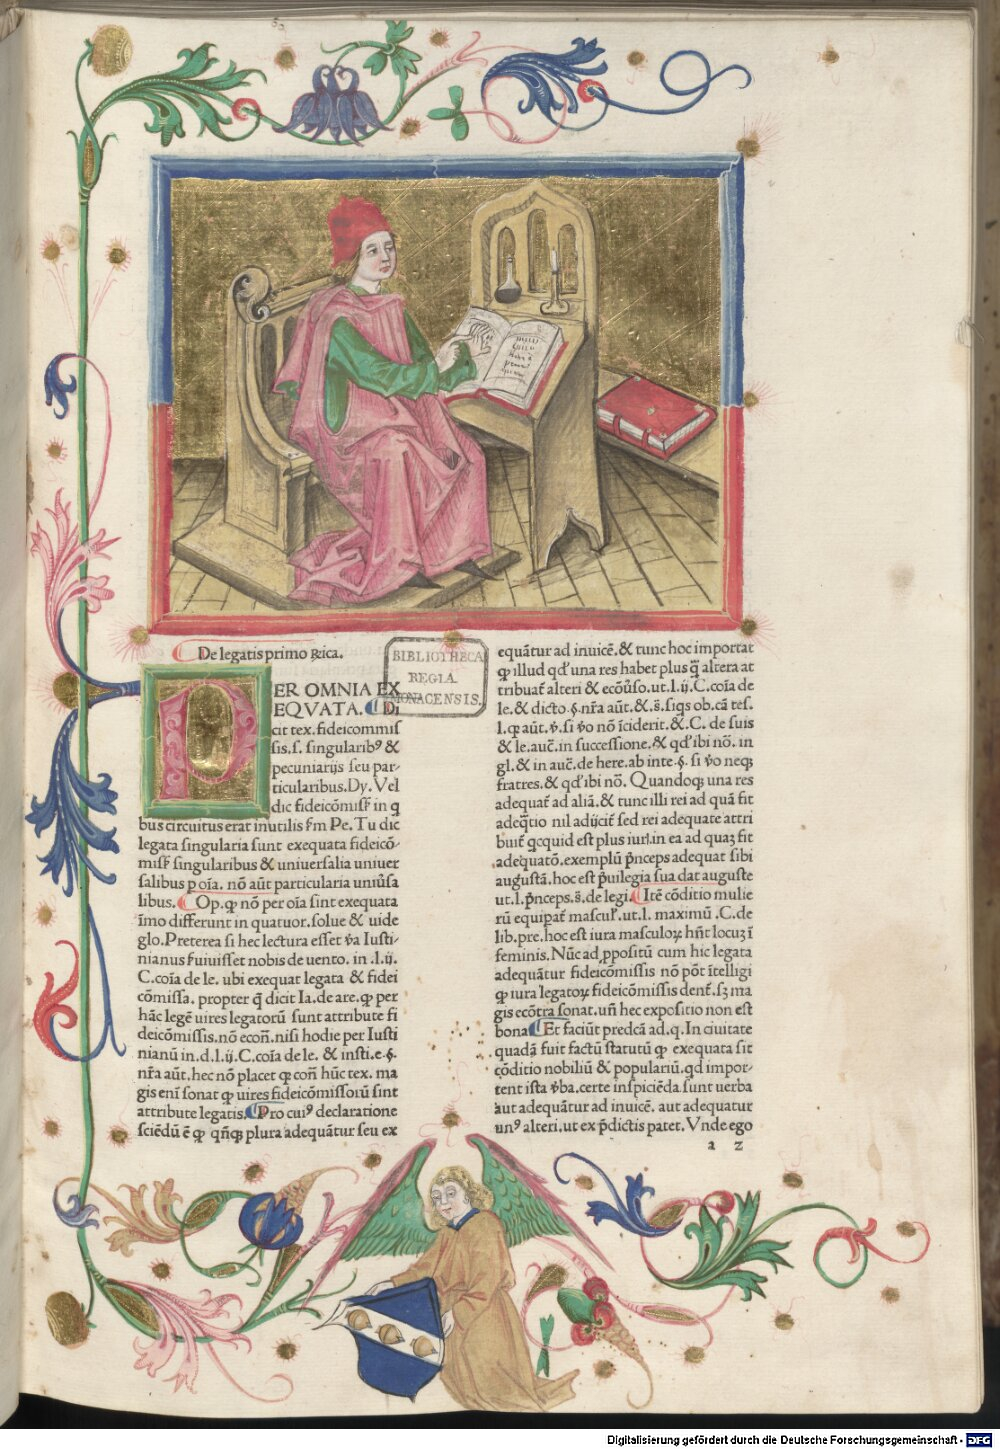 De legatis primo Rica.
BIBLIOTHECA
REGIA
MONACENSIS.
PER OMNIA EX
EQVATA. Di
cit tex. fideicommis
sis. s. singularibꝰ &
pecuniarijs seu par-
ticularibus. Dy. Vel
dic fideicōmiss̄ in q
bus circuitus erat inutilis s̄m Pe. Tu dic
legata singularia sunt exequata fideicō-
miss̄ singularibus & uniuersalia uniuer
salibus p oīa. nō aūt particularia uniūsa
libus. Op. ꝙ nō per oīa sint exequata
īmo differunt in quatuor. solue & uide
glo. Preterea si hec lectura esset v̄a Iusti-
nianus s̄uiuisset nobis de uento. in .l. ij.
C. coīa de le. ubi exequat legata & fidei
cōmissa. propter q̄ dicit Ia. de are. ꝙ per
hāc legē uires legatorū sunt attribute fi
deicōmissis. nō econ̄. nisi hodie per Iusti
nianū in. d. l. ij. C. coīa de le. & insti. e. §.
nr̄a aūt. hec nō placet ꝙ con̄ hūc tex. ma
gis enī sonat ꝙ uires fideicōmissorū sint
attribute legatis. Pro cuiꝰ declaratione
sciēdū ē ꝙ qn̄qꝫ plura adequātur seu ex
equātur ad inuicē. & tunc hoc importat
ꝙ illud qd̓ una res habet plus q̄ altera at
tribuat̄ alteri & ecōu̓so. ut. l. ij. C. coīa de
le. & dicto. §. nr̄a aūt. & .s̄. siqs ob. cā tes.
l. ꝙ aūt. v̄. si v̄o nō īciderit. &. C. de suis
& le. auc̄. in successione. & qd̓ ibi nō. in
gl. & in auc̄. de here. ab inte. §. si v̄o neqꝫ
fratres. & qd̓ ibi nō. Quandoqꝫ una res
adequat̄ ad aliā. & tunc illi rei ad quā fit
adeq̄tio nil adijcit̄ sed rei adequate attri
buit̄ qcquid est plus iur̄. in ea ad quaꝫ fit
adequatō. exemplū p̄nceps adequat sibi
augustā. hoc est p̄uilegia sua dat auguste
ut. l. p̄nceps. s̄. de legi. Itē cōditio mulie
rū equipat̄ masculꝭ. ut. l. maximū .C. de
lib. pre. hoc est iura masculoꝝ hn̄t locuꝫ ī
feminis. Nūc ad ꝓpositū cum hic legata
adequātur fideicōmissis nō pōt ītelligi
ꝙ iura legatoꝝ fideicōmissis dent̄. sꝫ ma
gis ecōtra sonat. un̄ hec expositio non est
bona Et faciūt predcā ad. q. In ciuitate
quadā fuit factū statutū ꝙ exequata sit
cōditio nobiliū & populariū. qd impor-
tent ista v̄ba. certe inspiciēda sunt uerba
aut adequātur ad inuicē. aut adequatur
unꝰ alteri. ut ex p̄dictis patet. Vnde ego
a 2
Digitalisierung gefördert durch die Deutsche Forschungsgemeinschaft - DFG